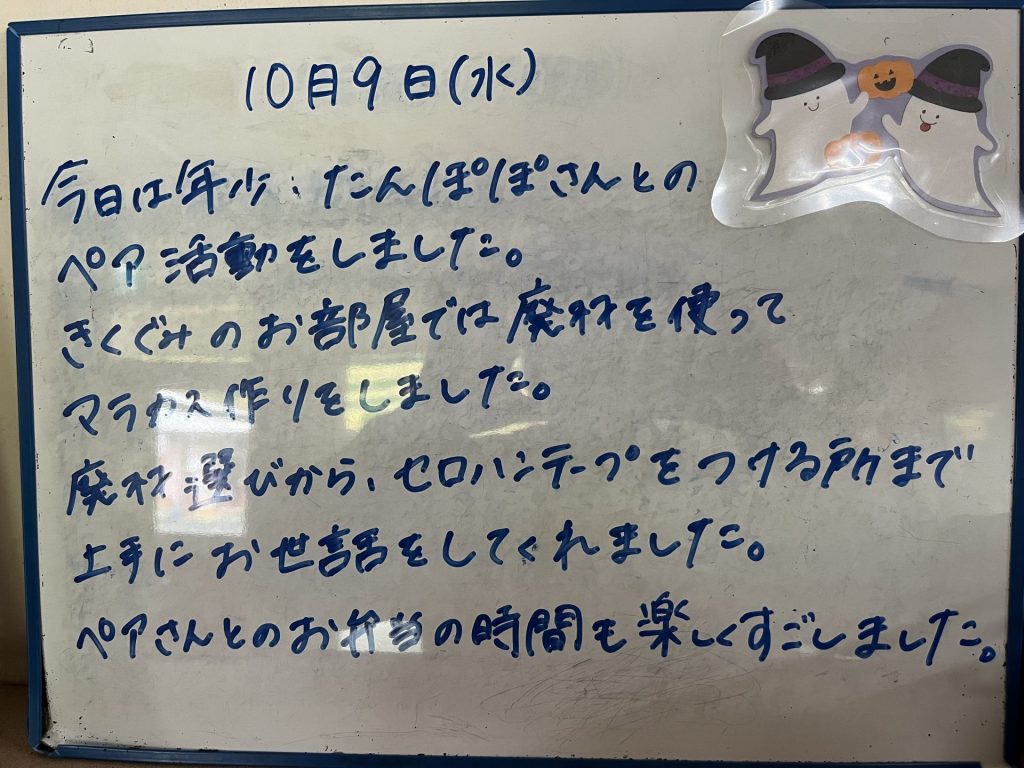 10月9日(水)
今日は年少、たんぽぽさんとの
ペア活動をしました。
きくぐみのお部屋では廃材を使って
マラカス作りをしました。
廃材選びから、セロハンテープをつける所まで
上手にお世話をしてくれました。
ペアさんとのお弁当の時間も楽しくすごしました。